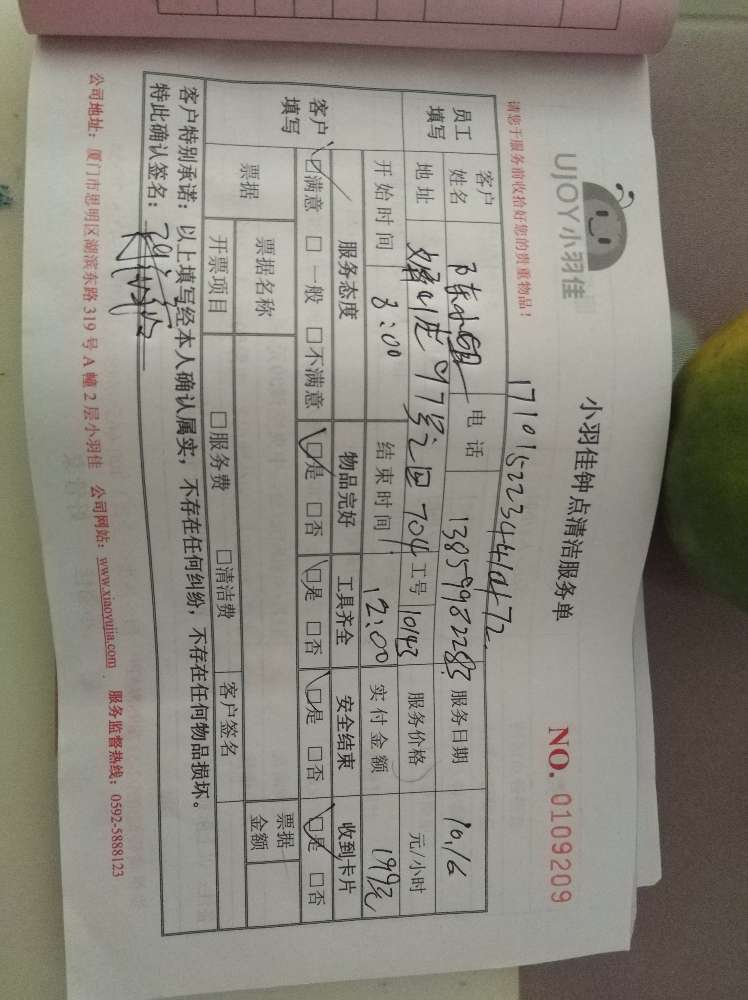 UJOY小羽佳
小羽佳钟点清洁服务单
NO. 0109209
请您于服务前收拾好您的贵重物品！
员工填写
客户姓名
电话 13859982283 服务日期 10.16
地址
704 工号 10143 服务价格 元/小时
开始时间 8:00 结束时间 12:00 实付金额 199元
客户填写
服务态度 物品完好 工具齐全 安全结束 收到卡片
☑满意 □一般 □不满意 ☑是 □否 ☑是 □否 ☑是 □否 ☑是 □否
票据 票据名称 票据金额
开票项目 □服务费 □清洁费 客户签名
客户特别承诺：以上填写经本人确认属实，不存在任何纠纷，不存在任何物品损坏。
特此确认签名：
公司地址：厦门市思明区湖滨东路 319 号 A 幢 2 层小羽佳 公司网站：www.xiaoyujia.com 服务监督热线：0592-5888123